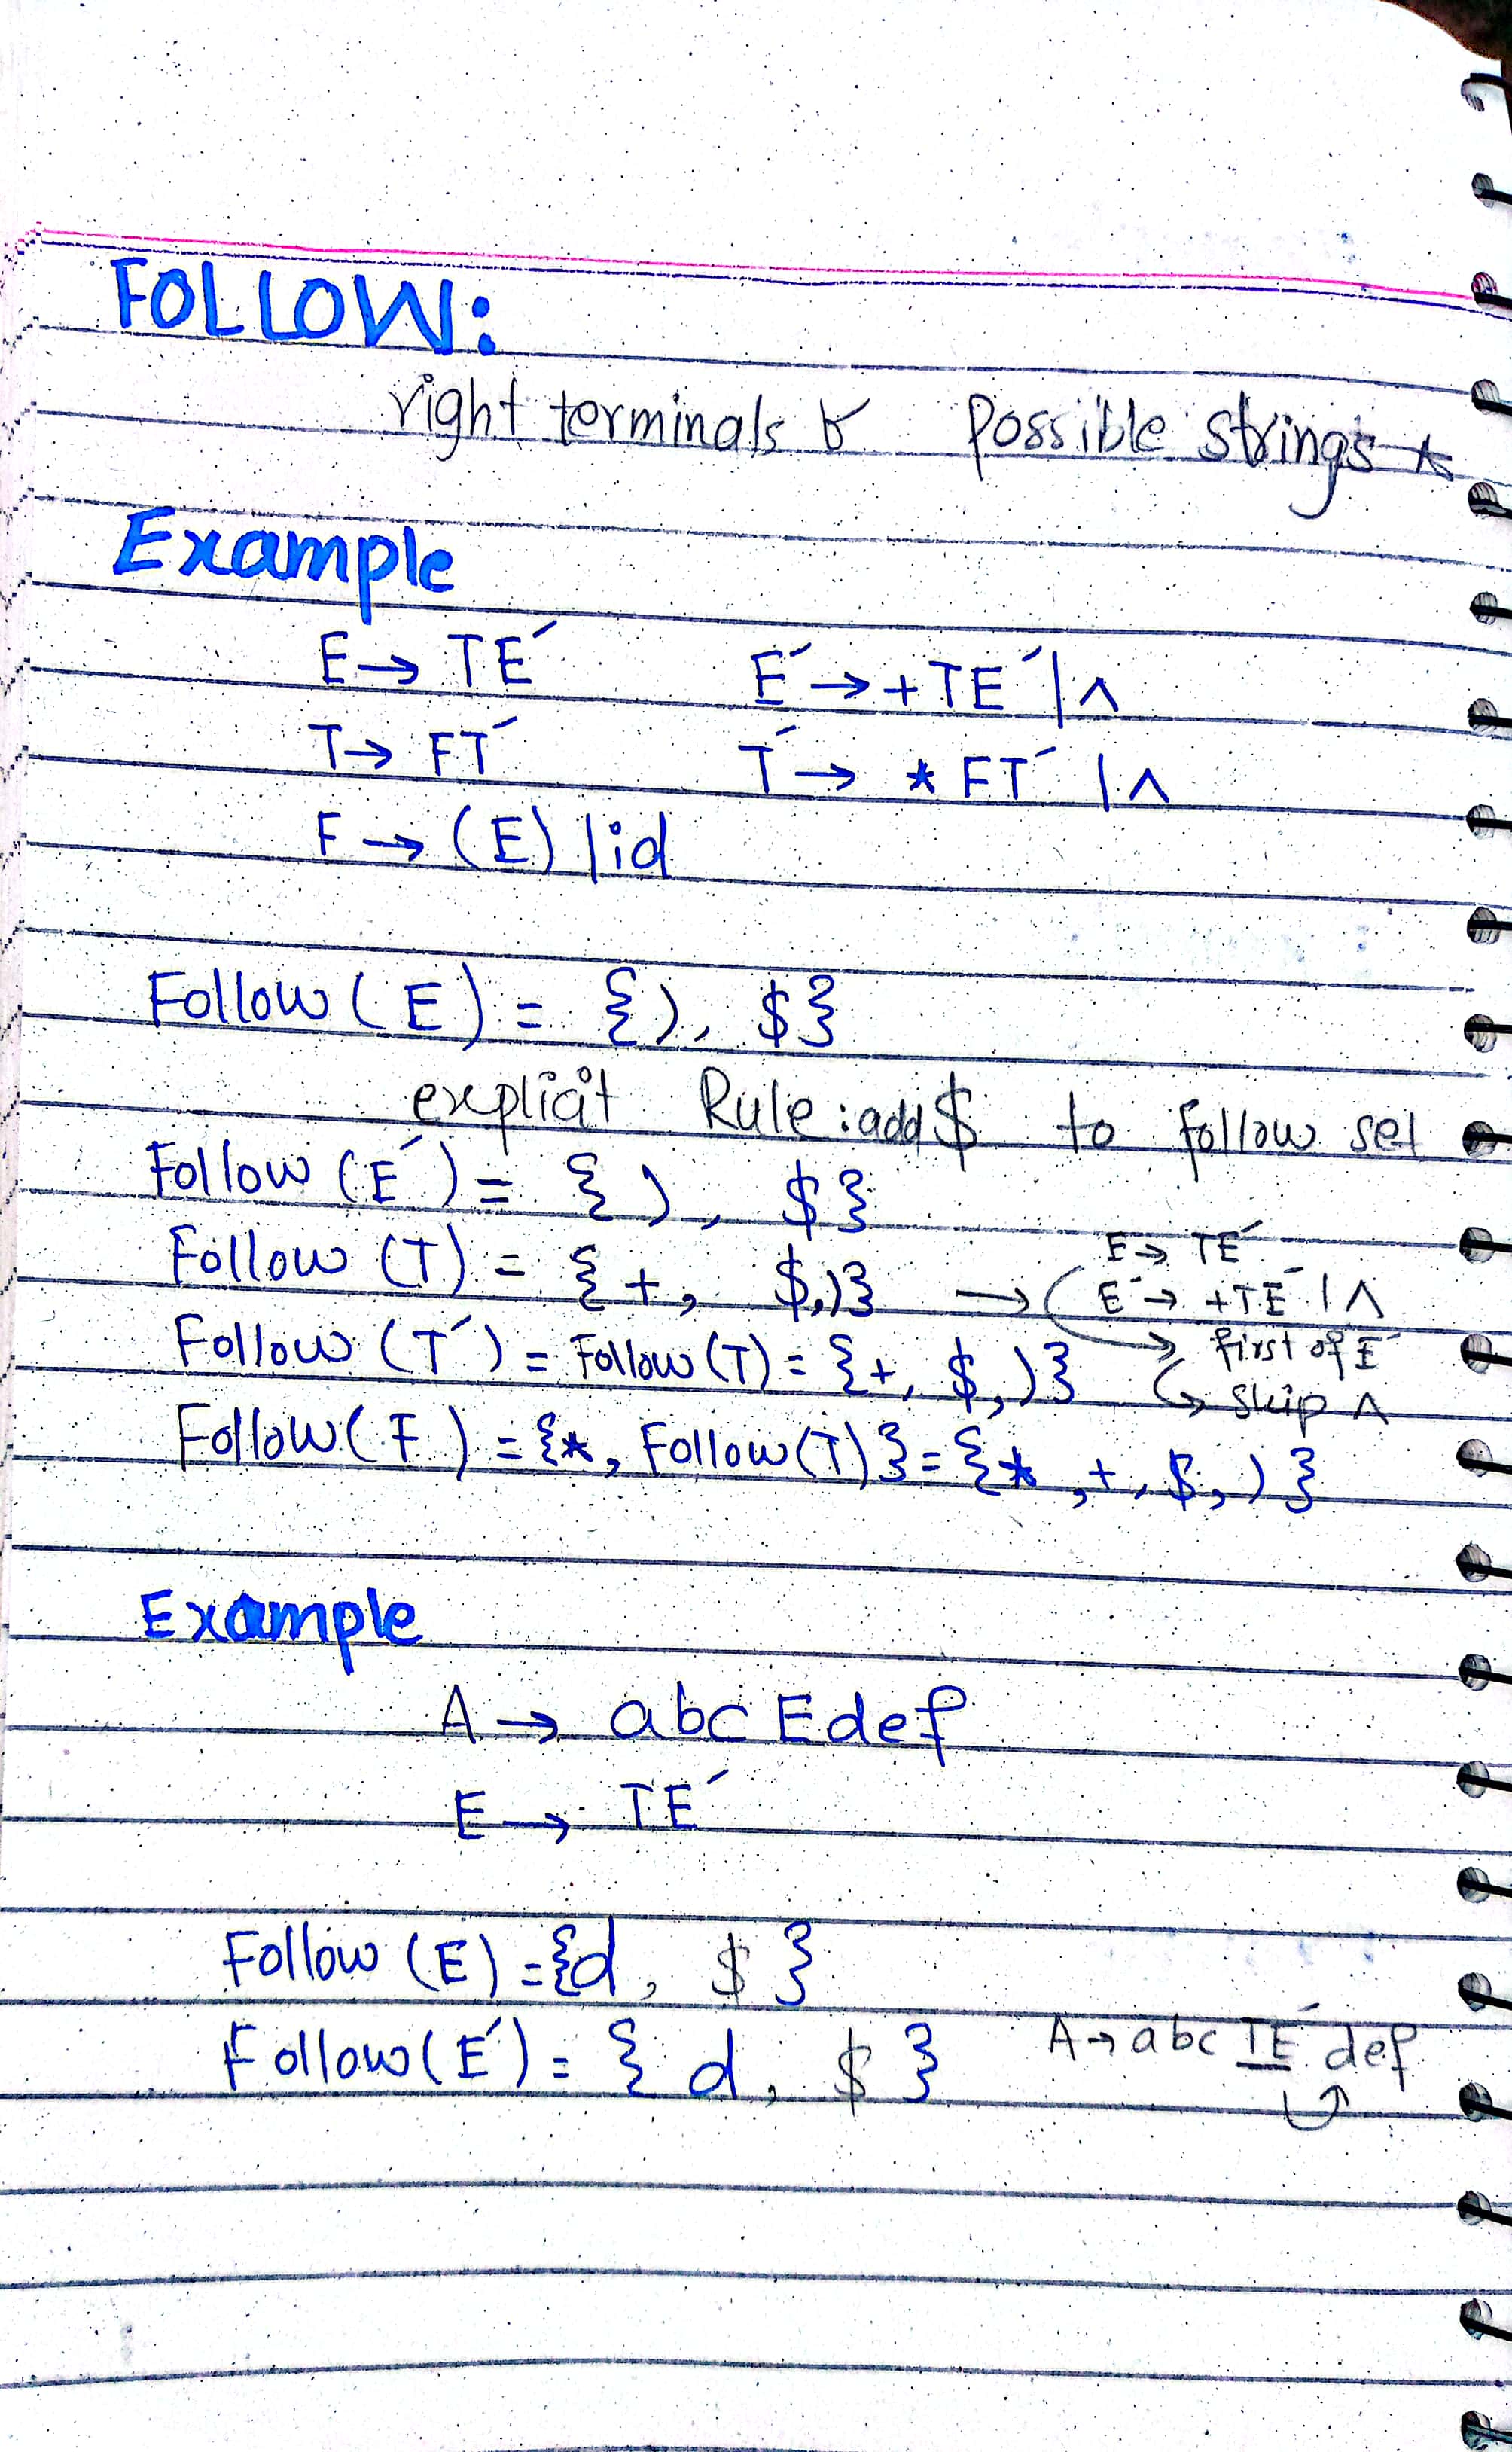 FOLLOW:
right terminals & possible strings *
Example
E → TE´ E´ → +TE´ | ^
T → FT´ T´ → * FT´ | ^
F → (E) | id
Follow (E) = { ), $}
explicit Rule : add $ to follow set
Follow (E´) = { ), $}
Follow (T) = { +, $, )} → E → TE´
E´ → +TE´ | ^
first of E´
skip ^
Follow (T´) = Follow (T) = {+, $, )}
Follow (F) = {*, Follow (T)} = {*, +, $, ) }
Example
A → abc E def
E → TE´
Follow (E) = {d, $ }
Follow (E´) = { d, $ } A → abc TE´ def